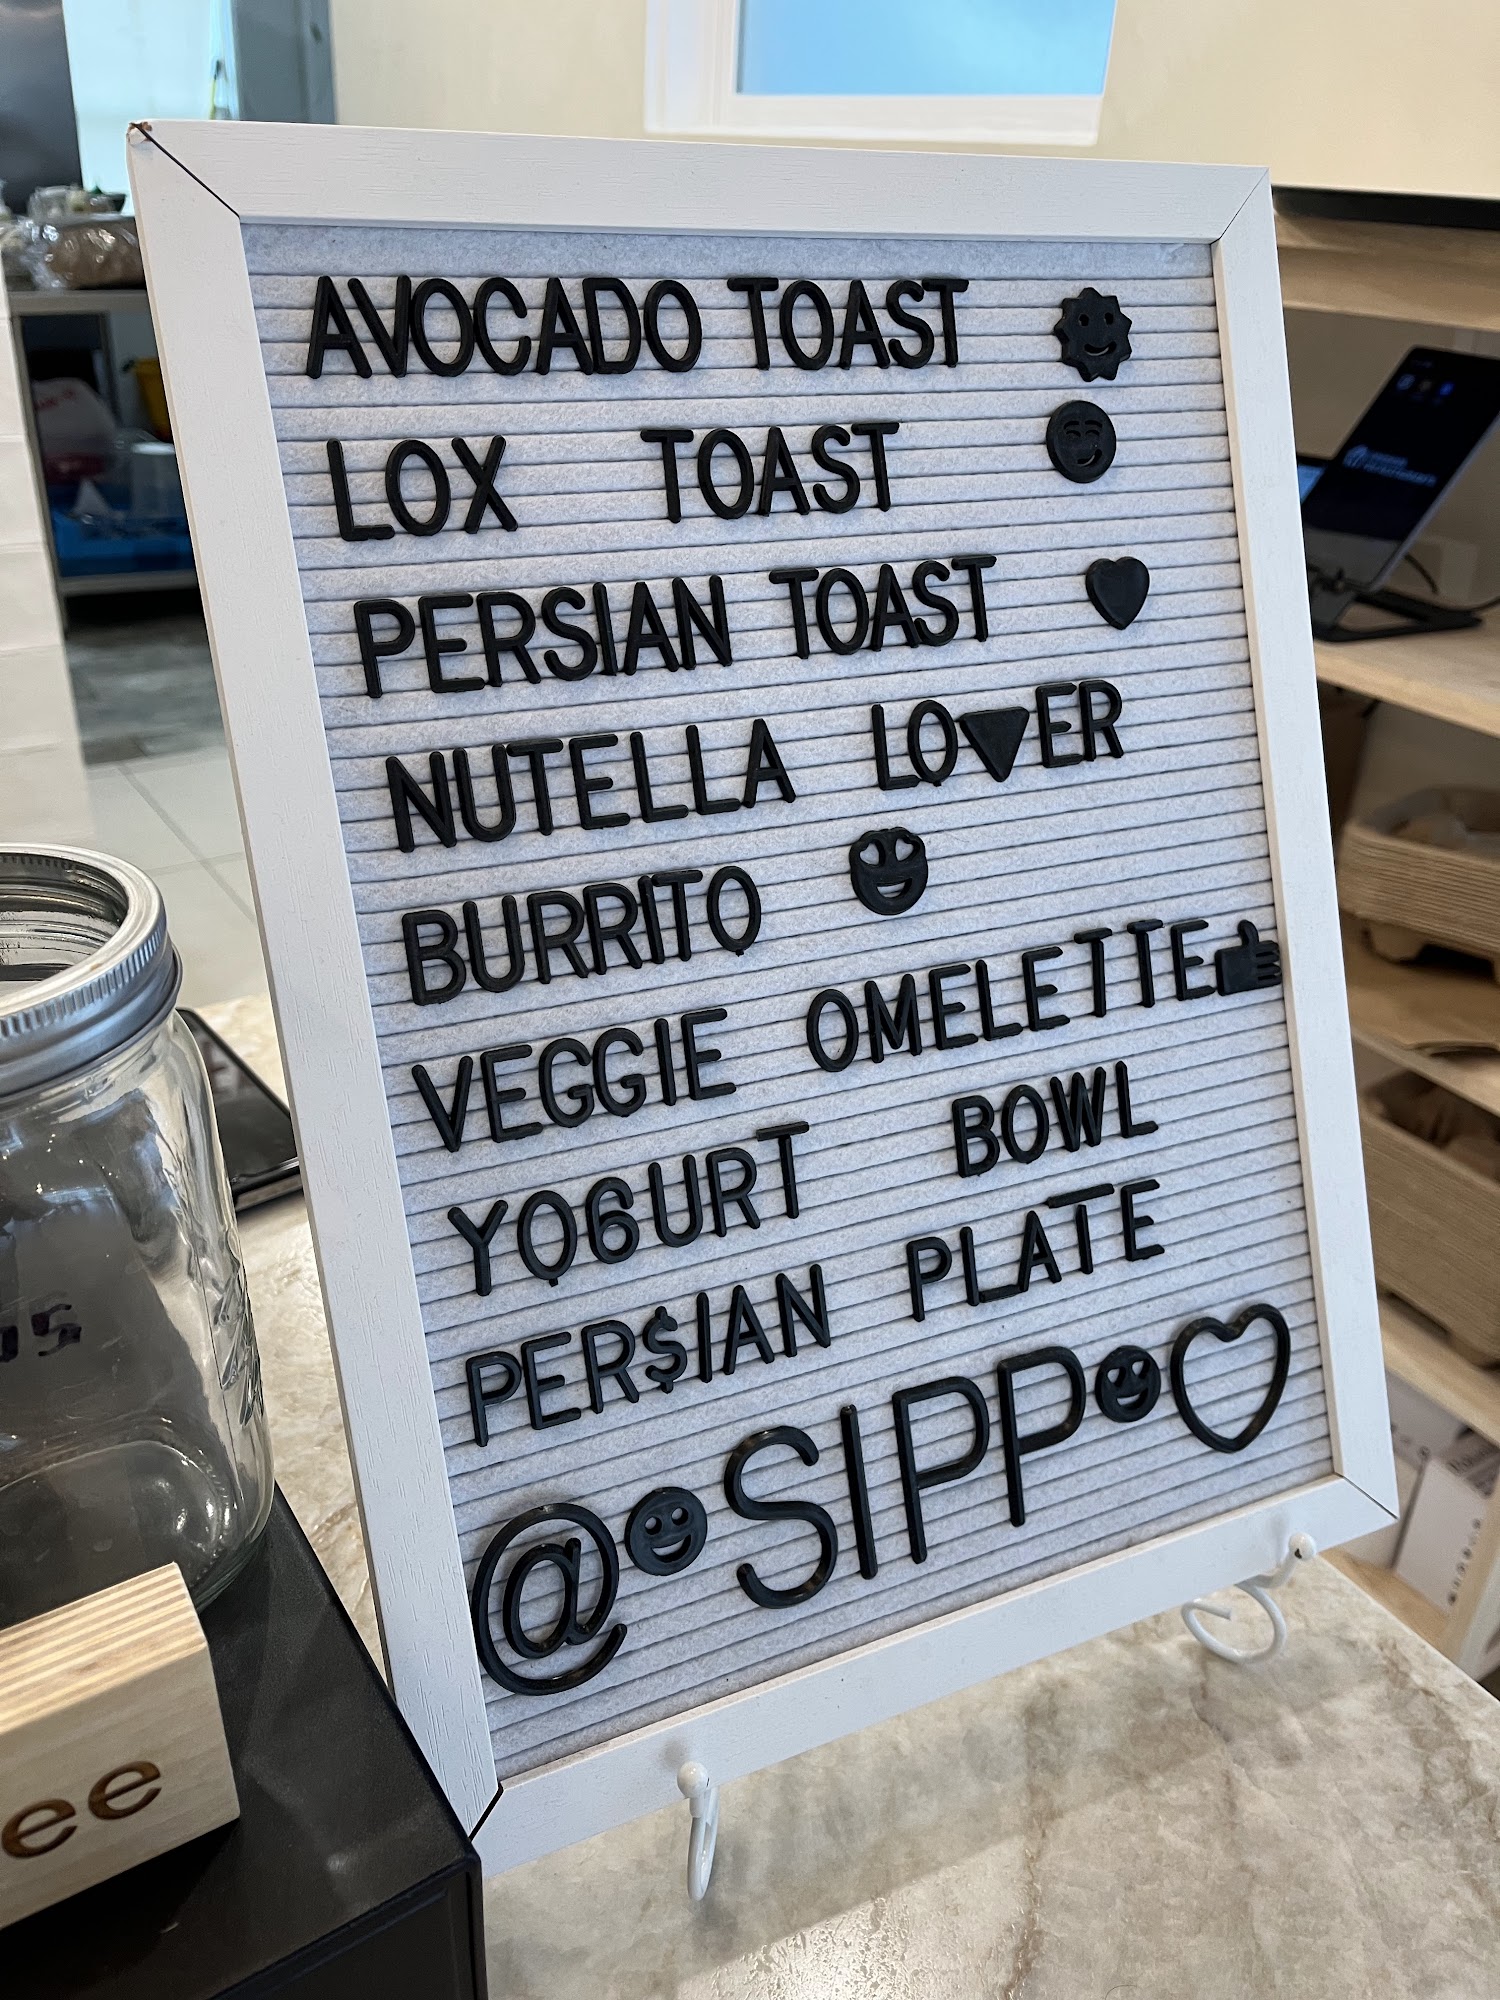 AVOCADO TOAST
LOX TOAST
PERSIAN TOAST
NUTELLA LO▼ER
BURRITO
VEGGIE OMELE7TE
YQ6URT BOWL
PER$IAN PLATE
@SIPP
ee